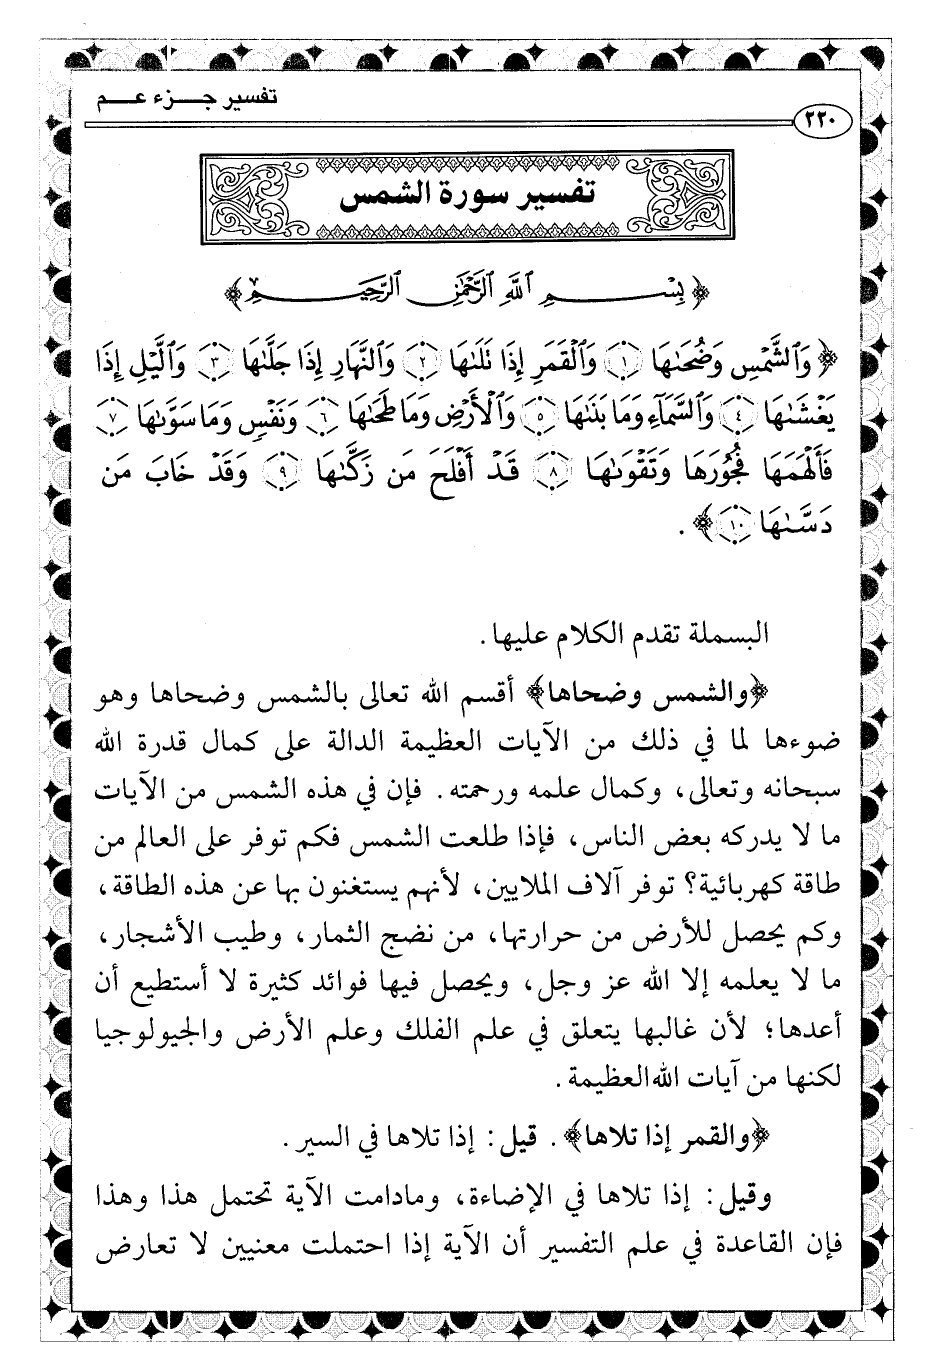 تفسير جزء عم
٢٢٠
تفسير سورة الشمس
﴿بِسْمِ ٱللَّهِ ٱلرَّحْمَٰنِ ٱلرَّحِيمِ﴾
﴿وَٱلشَّمْسِ وَضُحَىٰهَا ١ وَٱلْقَمَرِ إِذَا تَلَىٰهَا ٢ وَٱلنَّهَارِ إِذَا جَلَّىٰهَا ٣ وَٱلَّيْلِ إِذَا
يَغْشَىٰهَا ٤ وَٱلسَّمَآءِ وَمَا بَنَىٰهَا ٥ وَٱلْأَرْضِ وَمَا طَحَىٰهَا ٦ وَنَفْسٍ وَمَا سَوَّىٰهَا ٧
فَأَلْهَمَهَا فُجُورَهَا وَتَقْوَىٰهَا ٨ قَدْ أَفْلَحَ مَن زَكَّىٰهَا ٩ وَقَدْ خَابَ مَن
دَسَّىٰهَا ١٠﴾.
البسملة تقدم الكلام عليها.
﴿والشمس وضحاها﴾ أقسم الله تعالى بالشمس وضحاها وهو
ضوءها لما في ذلك من الآيات العظيمة الدالة على كمال قدرة الله
سبحانه وتعالى، وكمال علمه ورحمته. فإن في هذه الشمس من الآيات
ما لا يدركه بعض الناس، فإذا طلعت الشمس فكم توفر على العالم من
طاقة كهربائية؟ توفر آلاف الملايين، لأنهم يستغنون بها عن هذه الطاقة،
وكم يحصل للأرض من حرارتها، من نضج الثمار، وطيب الأشجار،
ما لا يعلمه إلا الله عز وجل، ويحصل فيها فوائد كثيرة لا أستطيع أن
أعدها؛ لأن غالبها يتعلق في علم الفلك وعلم الأرض والجيولوجيا
لكنها من آيات الله العظيمة.
﴿والقمر إذا تلاها﴾. قيل: إذا تلاها في السير.
وقيل: إذا تلاها في الإضاءة، ومادامت الآية تحتمل هذا وهذا
فإن القاعدة في علم التفسير أن الآية إذا احتملت معنيين لا تعارض